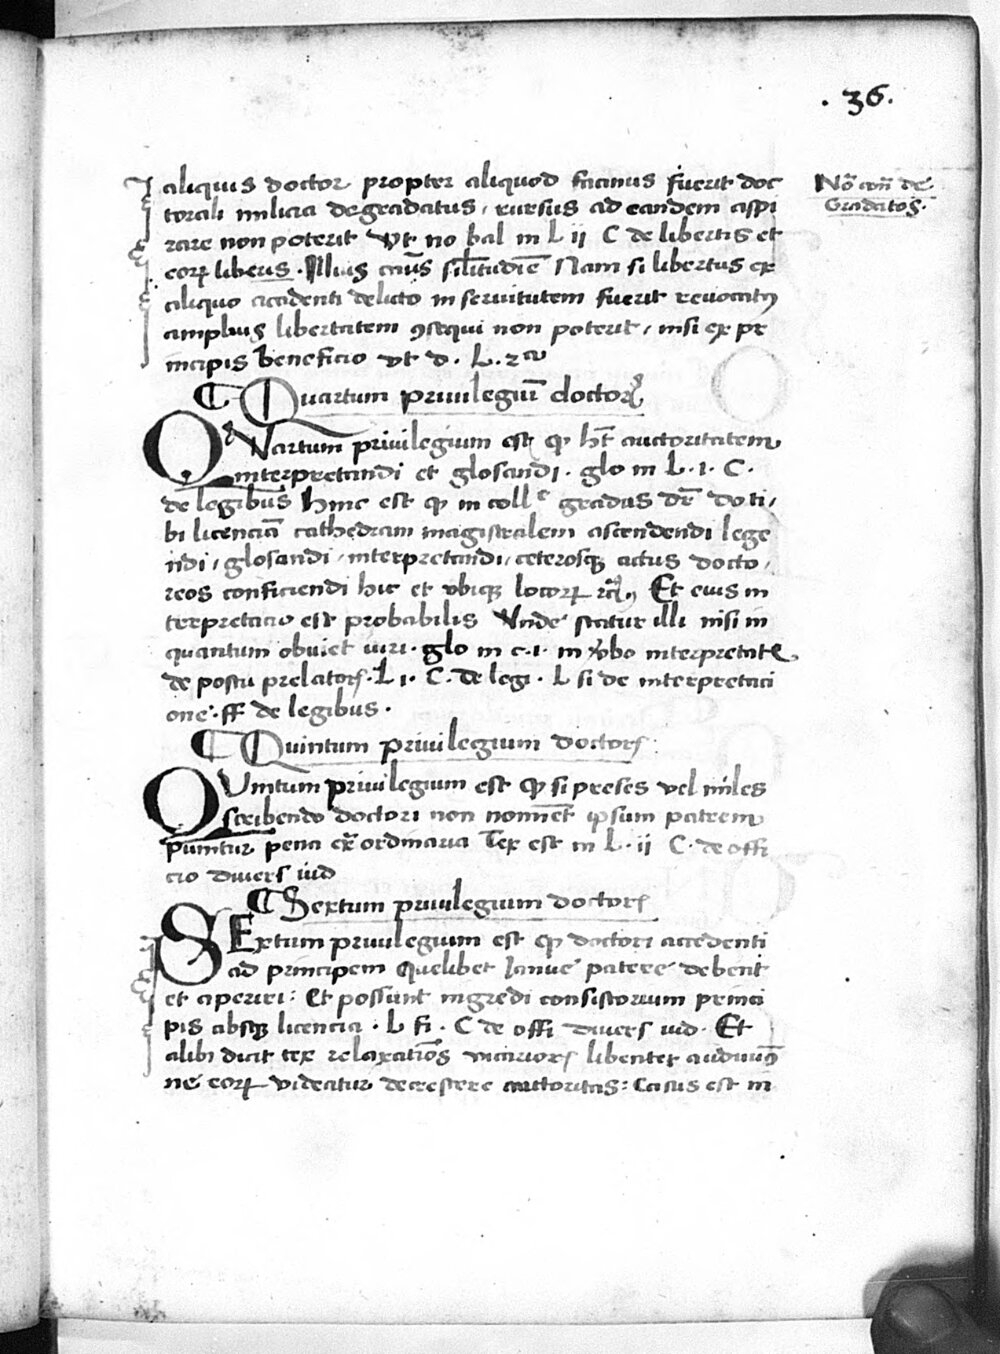 .36.
aliquis doctor propter aliquod facinus fuerit doc
torali milicia degradatus, rursus ad eandem aspi
rare non poterit vt no bal in L ii C de libertis et
eorꝝ liberis. Illius similitudinē Nam si libertus ex
aliquo accidenti delicto in seruitutem fuerit reuocatꝰ
amplius libertatem ꝯsequi non poterit, nisi ex pr
incipis beneficio vt d. L. 2
Nō de
Gradatos.
¶ Quartum priuilegiū doctorꝝ
QVartum priuilegium est ꝙ ht auctoritatem
interpretandi et glosandi. glo in L. 1. C.
de legibus hinc est ꝙ in coll gradus dr̄ do ti,
bi licenciā cathedram magistralem ascendendi lege
ndi, glosandi, interpretandi, ceterosqꝫ actus docto,
reos conficiendi hic et vbiqꝫ locorꝝ Et eius in
terpretatio est probabilis Vnde statur illi nisi in
quantum obuiet iuri. glo in c. 1. in ꝟbo interpretate
de postu prelatorꝭ. L 1. C. de legi. L si de interpretaci
one. ff de legibus.
¶ Quintum priuilegium doctorꝭ
QVintum priuilegium est ꝙ si preses vel miles
scribendo doctori non nominet ipsum patrem
punitur pena ex̄ordinaria Tex est in L. ii C. de offi
cio diuers iud
¶ Sextum priuilegium doctorꝭ
SExtum priuilegium est ꝙ doctori accedenti
ad principem Quelibet Ianue patere debent
et aperiri: Et possunt ingredi consistorium princi
pis absqꝫ licencia. L fi. C de offi diuers iud. Et
alibi dicit tex relaxatiōs libenter audiuimꝰ
ne eorꝝ videatur decrescere auctoritas: Casus est in